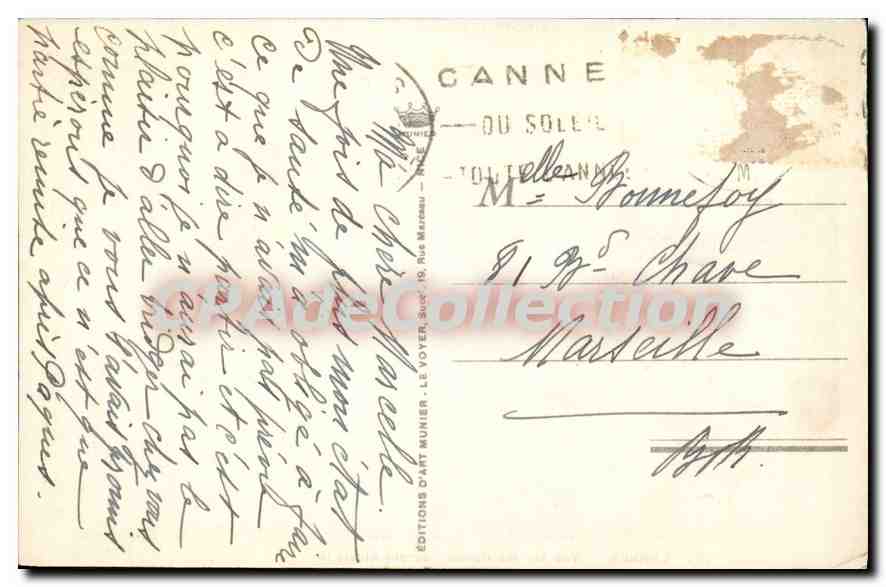 Ma chère Marcelle.
Une fois de plus mon état
de santé m'a obligé à faire
ce que je n'avais pas prévu
c'est a dire partir et c'est
pourquoi je n'aurai pas le
plaisir d'aller diner chez vous
comme je vous l'avais promis
espérons que ce n'est que
partie remise après Pâques.
CANNE
DU SOLEIL
TOUTE L'ANNE
MUNIER
ÉDITIONS D'ART MUNIER. LE VOYER, Succr, 19, Rue Marceau — NICE
Melle Bonnefoy
81 Bd Chave
Marseille
BdR.
CPAdeCollection.com